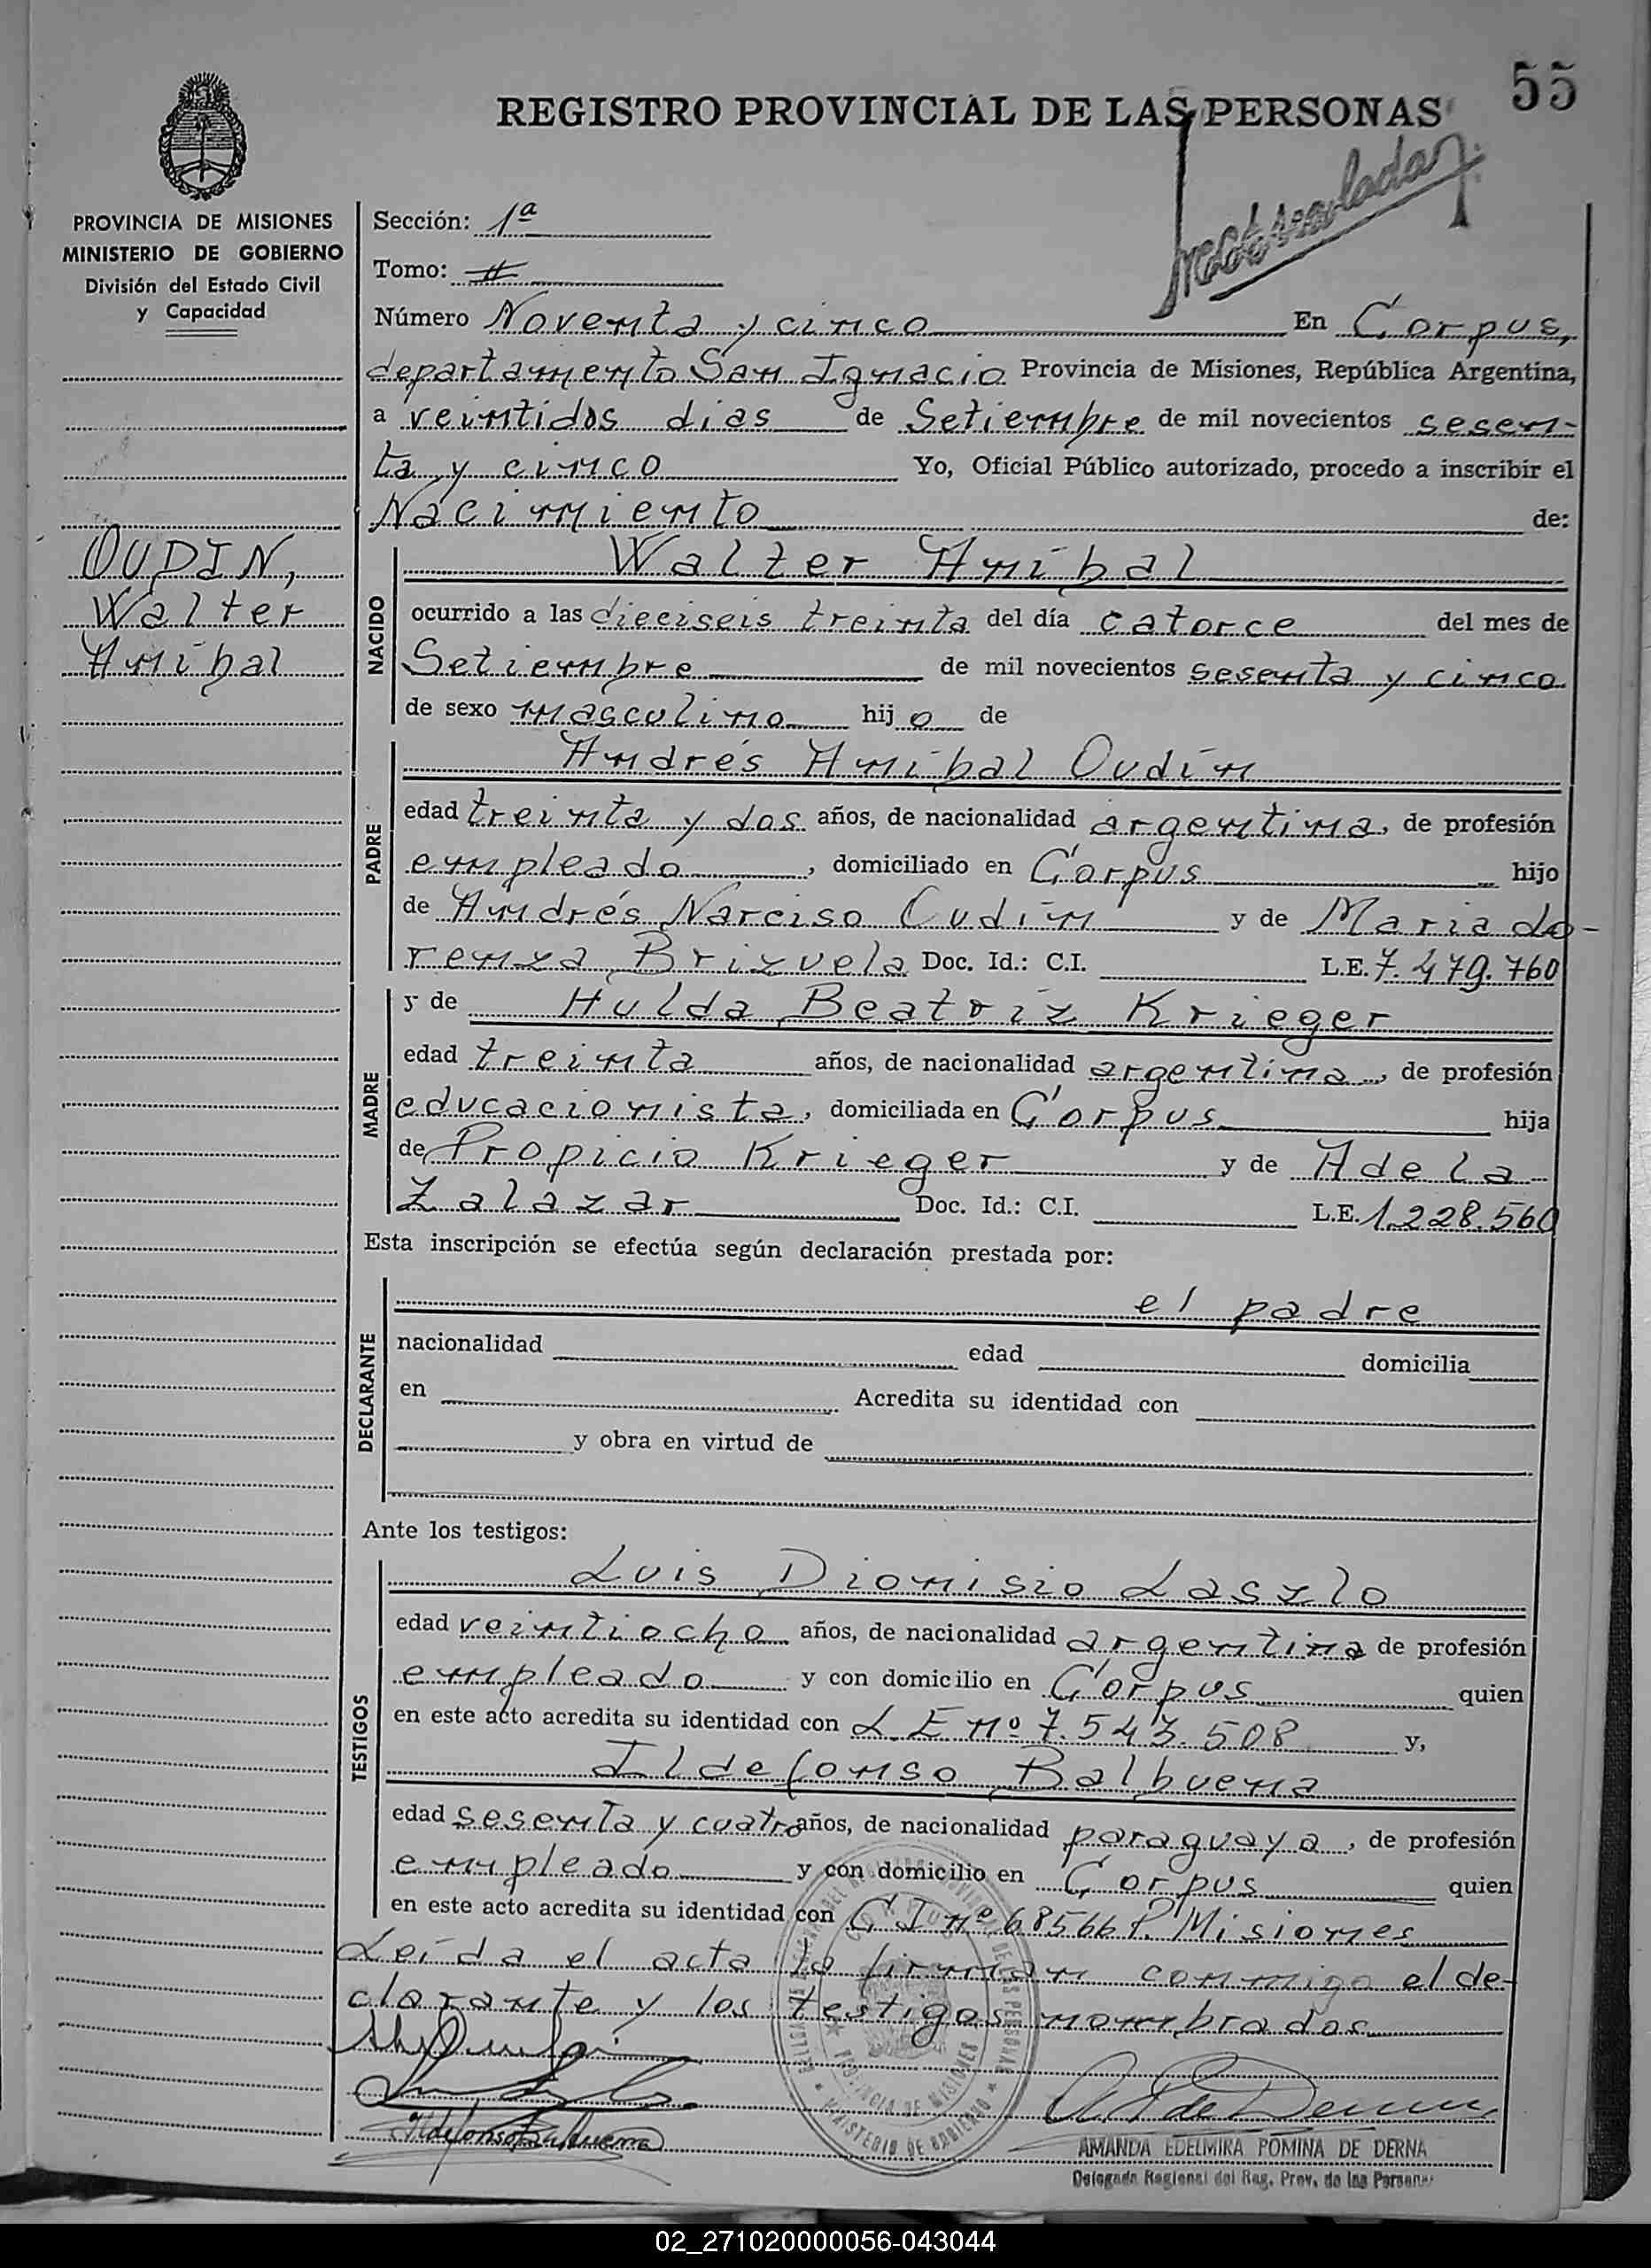 55
REGISTRO PROVINCIAL DE LAS PERSONAS
PROVINCIA DE MISIONES
MINISTERIO DE GOBIERNO
División del Estado Civil
y Capacidad
OUDIN,
Walter
Anibal
Sección: 1ª
Tomo:
Número Noventa y cinco En Corpus,
departamento San Ignacio Provincia de Misiones, República Argentina,
a veintidos dias de Setiembre de mil novecientos sesen-
ta y cinco Yo, Oficial Público autorizado, procedo a inscribir el
Nacimiento de:
NACIDO
Walter Anibal
ocurrido a las dieciseis treinta del día catorce del mes de
Setiembre de mil novecientos sesenta y cinco
de sexo masculino hij o de
PADRE
Andrés Anibal Oudin
edad treinta y dos años, de nacionalidad argentina, de profesión
empleado, domiciliado en Corpus hijo
de Andrés Narciso Oudin y de Maria Lo-
renza Brizuela Doc. Id.: C.I. L.E. 7.479.760
MADRE
y de Hulda Beatriz Krieger
edad treinta años, de nacionalidad argentina, de profesión
educacionista, domiciliada en Corpus hija
de Propicio Krieger y de Adela
Zalazar Doc. Id.: C.I. L.E. 1.228.560
Esta inscripción se efectúa según declaración prestada por:
DECLARANTE
el padre
nacionalidad edad domicilia
en Acredita su identidad con
y obra en virtud de
Ante los testigos:
TESTIGOS
Luis Dionisio Laszlo
edad veintiocho años, de nacionalidad argentina de profesión
empleado y con domicilio en Corpus quien
en este acto acredita su identidad con L.E nº 7.543.508 y,
Ildefonso Balbuena
edad sesenta y cuatro años, de nacionalidad paraguaya, de profesión
empleado y con domicilio en Corpus quien
en este acto acredita su identidad con C.I nº 68566 P. Misiones
Leída el acta la firman conmigo el de-
clarante y los testigos nombrados
Ildefonso Balbuena
PROVINCIA DE MISIONES
MINISTERIO DE GOBIERNO
AMANDA EDELMIRA POMINA DE DERNA
Delegada Regional del Reg. Prov. de las Personas
02_271020000056-043044